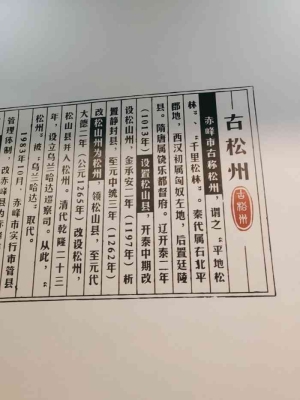 古松州
古松州
赤峰市古称松州，谓之“平地松
林”、“千里松林”。秦代属右北平
郡地，西汉初属匈奴左地，后置廷陵
县。隋唐属饶乐都督府。辽开泰二年
（1013年）设置松山县，开泰中期改
设松山州，金承安二年（1197年）析
置静封县，至元中统三年（1262年）
改松山州为松州，领松山县，至元代
大德二年（公元1265年）改设松州，
松山县并入松州。清代乾隆二十三
年，设立乌兰哈达巡察司。从此，“
松州”被“乌兰哈达”取代。
1983年10月，赤峰市实行市管县
管理体制，改赤峰县为